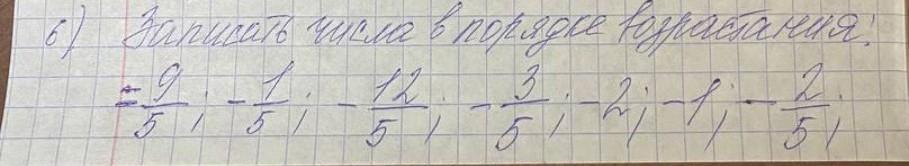 6) Записать числа в порядке возрастания:
-9/5; -1/5; -12/5; -3/5; -2; -1; -2/5;